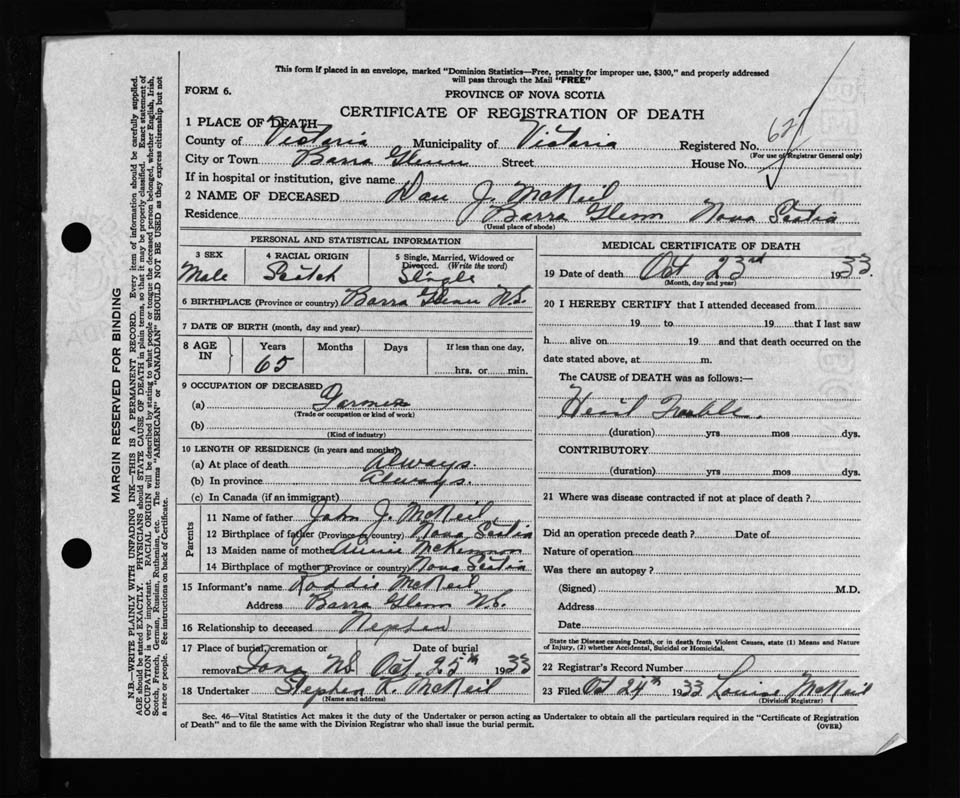 This form if placed in an envelope, marked "Dominion Statistics—Free, penalty for improper use, $300," and properly addressed
will pass through the Mail "FREE"
FORM 6.
PROVINCE OF NOVA SCOTIA
CERTIFICATE OF REGISTRATION OF DEATH
1 PLACE OF DEATH
County of Victoria Municipality of Victoria Registered No.
(For use of Registrar General only)
City or Town Barra Glenn Street House No.
If in hospital or institution, give name
2 NAME OF DECEASED Dan J. McNeil
Residence Barra Glenn Nova Scotia
(Usual place of abode)
MARGIN RESERVED FOR BINDING
N.B.—WRITE PLAINLY WITH UNFADING INK—THIS IS A PERMANENT RECORD. Every item of information should be carefully supplied.
AGE should be stated EXACTLY. PHYSICIANS should STATE CAUSE OF DEATH in plain terms, so that it may be properly classified. Exact statement of
OCCUPATION is very important. RACIAL ORIGIN will be described by stating to what people or tongue the deceased person belonged, whether English, Irish,
Scotch, French, German, Russian, Ruthenian, etc. The terms "AMERICAN" or "CANADIAN" SHOULD NOT BE USED as they express citizenship but not
a race or people. See instructions on back of Certificate.
PERSONAL AND STATISTICAL INFORMATION
3 SEX 4 RACIAL ORIGIN 5 Single, Married, Widowed or
Divorced. (Write the word)
Male Scotch Single
6 BIRTHPLACE (Province or country) Barra Glenn N.S.
7 DATE OF BIRTH (month, day and year)
8 AGE IN Years Months Days If less than one day,
65 hrs. or min.
9 OCCUPATION OF DECEASED
(a) Farmer
(Trade or occupation or kind of work)
(b)
(Kind of industry)
10 LENGTH OF RESIDENCE (in years and months)
(a) At place of death Always.
(b) In province Always.
(c) In Canada (if an immigrant)
Parents
11 Name of father John J. McNeil
12 Birthplace of father (Province or country) Nova Scotia
13 Maiden name of mother Annie McKinnon
14 Birthplace of mother (Province or country) Nova Scotia
15 Informant's name Roddie McNeil
Address Barra Glenn N.S.
16 Relationship to deceased Nephew
17 Place of burial, cremation or Date of burial
removal Iona N.S. Oct. 25th 1933
18 Undertaker Stephen L. McNeil
(Name and address)
MEDICAL CERTIFICATE OF DEATH
19 Date of death Oct 23rd 1933.
(Month, day and year)
20 I HEREBY CERTIFY that I attended deceased from
19 to 19 that I last saw
h alive on 19 and that death occurred on the
date stated above, at m.
The CAUSE of DEATH was as follows:—
Heart Trouble.
(duration) yrs mos dys.
CONTRIBUTORY
(duration) yrs mos dys.
21 Where was disease contracted if not at place of death?
Did an operation precede death? Date of
Nature of operation
Was there an autopsy?
(Signed) M.D.
Address
Date
State the Disease causing Death, or in death from Violent Causes, state (1) Means and Nature
of Injury, (2) whether Accidental, Suicidal or Homicidal.
22 Registrar's Record Number
23 Filed Oct 24th 1933 Louise McNeil
(Division Registrar)
Sec. 46—Vital Statistics Act makes it the duty of the Undertaker or person acting as Undertaker to obtain all the particulars required in the "Certificate of Registration
of Death" and to file the same with the Division Registrar who shall issue the burial permit.
(OVER)